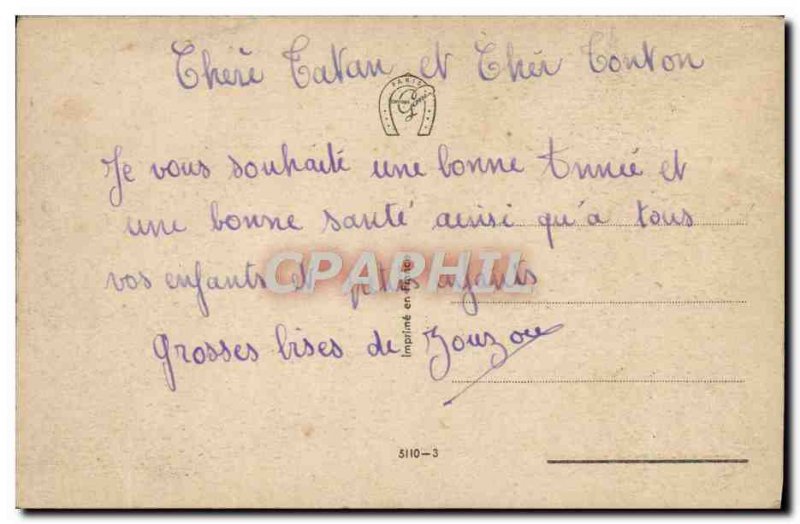 Chère Tatan et Cher Tonton
PARIS
Je vous souhaité une bonne Année et
une bonne santé ainsi qu'a tous
vos enfants et petits enfants
CPAPHIL
Grosses bises de Zouzou
Imprimé en France
5110-3